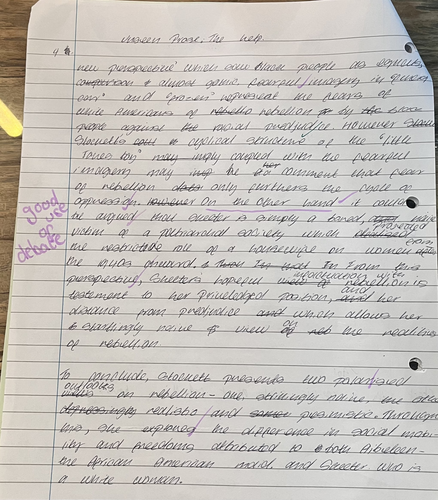 Unseen Prose, The Help.
4
new perspective' which saw black people as equals,
comparison & almost game fearful / imagery in "green
and "poison" represent the fears of
white Americans of rebellion by
people against the racial prejudice. However
Stocketts cyclical structure of the "little
may imply coupled with the fearful
imagery may be a comment that fear
of rebellion only furthers the cycle of
oppression. However On the other hand, it could
be argued that Skeeter is simply a bored, naive
victim of a patriarchal society which
the restrictive role of a housewife on women
the onward. In From this
perspective, Skeeters hopeful infatuation with rebellion is
testement to her priveledged position, and her
distance from predjudice and which allows her
a startlingly naive view on the realities
of rebellion.
good
use
of
debate
To conclude, Stockett presents two polarised
outlooks on rebellion - one, strikingly naive, the other
depressingly realistic / and pessimistic. Through
this, she exposes the difference in social mob-
ility and freedoms attributed to both Aibeleen -
the African American maid, and Skeeter who is
a white woman.